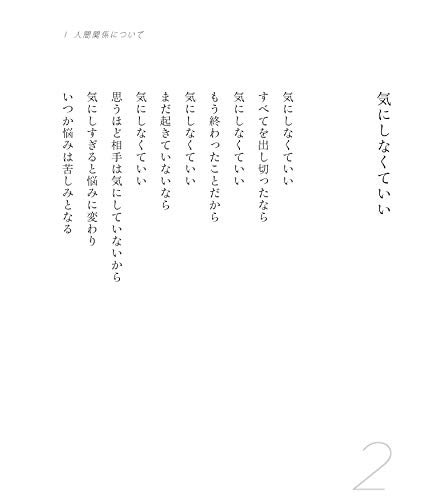 1 人間関係について
気にしなくていい
気にしなくていい
すべてを出し切ったなら
気にしなくていい
もう終わったことだから
気にしなくていい
まだ起きていないなら
気にしなくていい
思うほど相手は気にしていないから
気にしすぎると悩みに変わり
いつか悩みは苦しみとなる
2